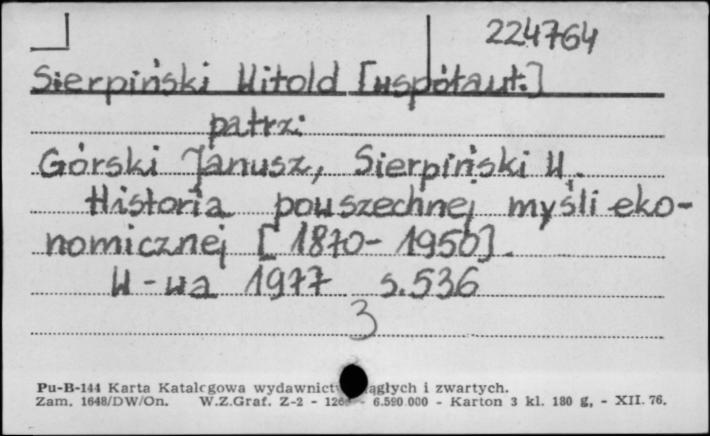 224764
Sierpiński Witold [współaut.]
patrz:
Górski Janusz, Sierpiński W.
Historia powszechnej myśli eko-
nomicznej [1870-1950].
W-wa 1977 s.536
3
Pu-B-144 Karta Katalogowa wydawnict ągłych i zwartych.
Zam. 1648/DW/On. W.Z.Graf. Z-2 - 126 - 6.590 000 - Karton 3 kl. 180 g, - XII. 76.